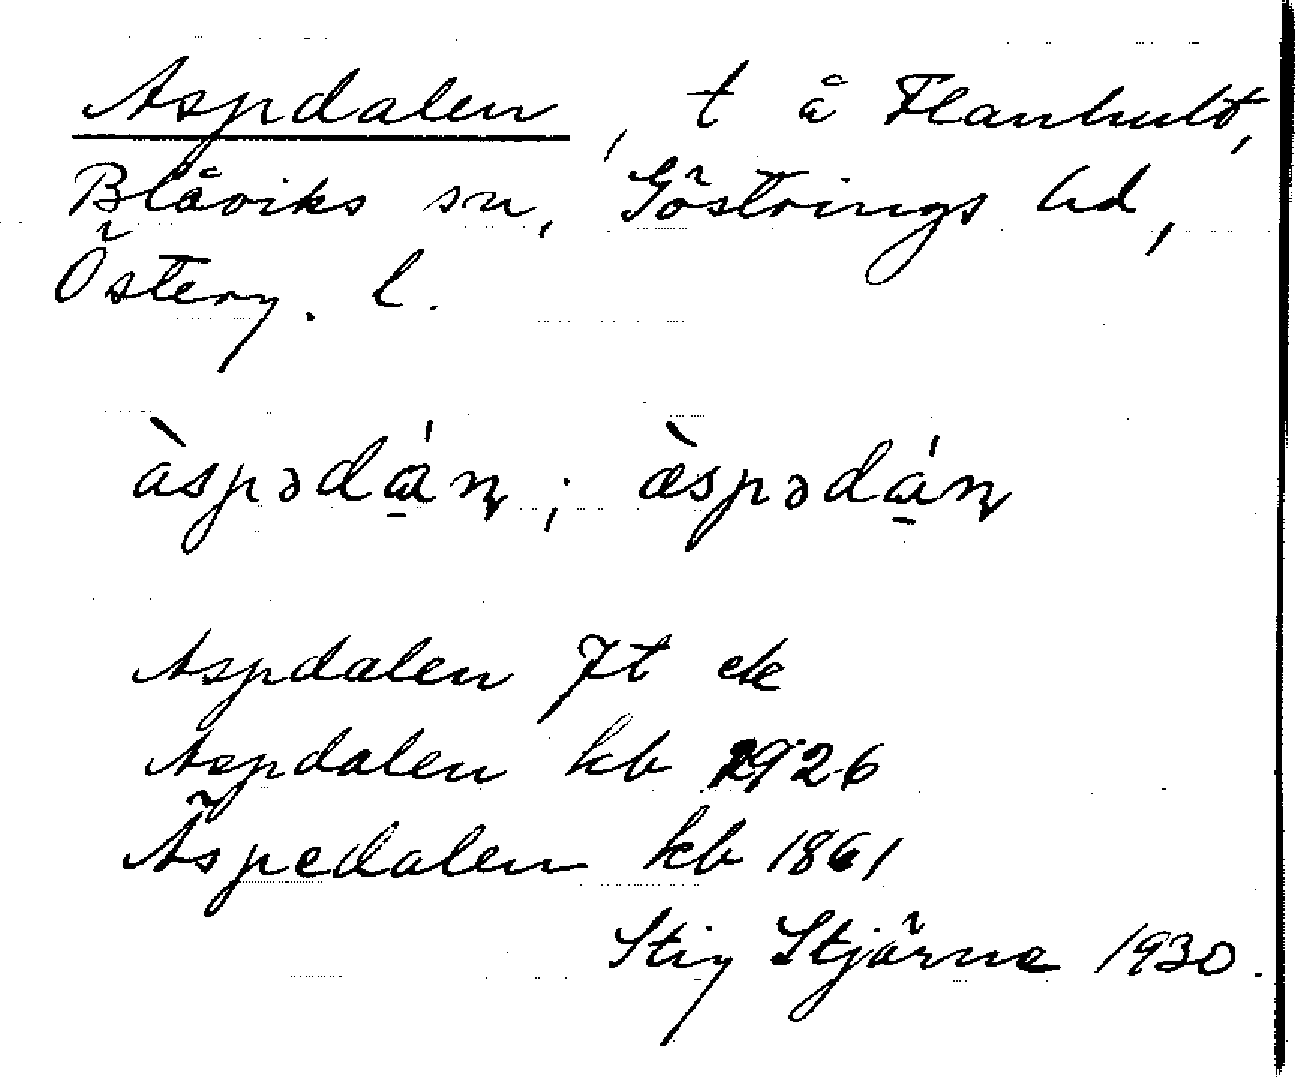 Aspdalen, t å Flanhult,
Blåviks sn, Göstrings hd,
Österg. l.
àspədά̱ɳ; æ̀spədά̱ɳ
Aspdalen Jt ek
Aspdalen kb 1926
Äspedalen kb 1861
Stig Stjärne 1930.